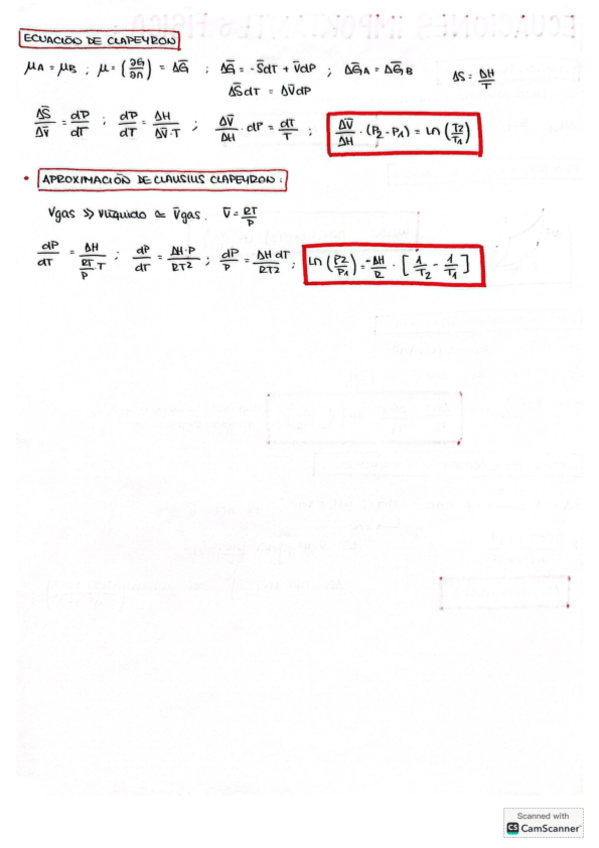 ECUACIÓN DE CLAPEYRON
μA = μB ; μ = (∂G/∂n) = ΔG̅ ; ΔG̅ = -S̅dT + V̅dP ; ΔG̅A = ΔG̅B
ΔS = ΔH/T
ΔS̅dT = ΔV̅dP
ΔS̅/ΔV̅ = dP/dT ; dP/dT = ΔH/ΔV̅·T ; ΔV̅/ΔH · dP = dT/T ; ΔV̅/ΔH · (P2 - P1) = Ln (T2/T1)
• APROXIMACIÓN DE CLAUSIUS CLAPEYRON:
Vgas >> Vlíquido ≃ V̅gas. V̅ = RT/P
dP/dT = ΔH/(RT/P · T) ; dP/dT = ΔH·P/RT2 ; dP/P = ΔH dT/RT2 ; Ln (P2/P1) = -ΔH/R · [1/T2 - 1/T1]
Scanned with
CS CamScanner